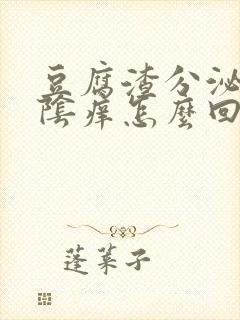 豆腐渣分泌
陰痒怎麼回
蓬莱子